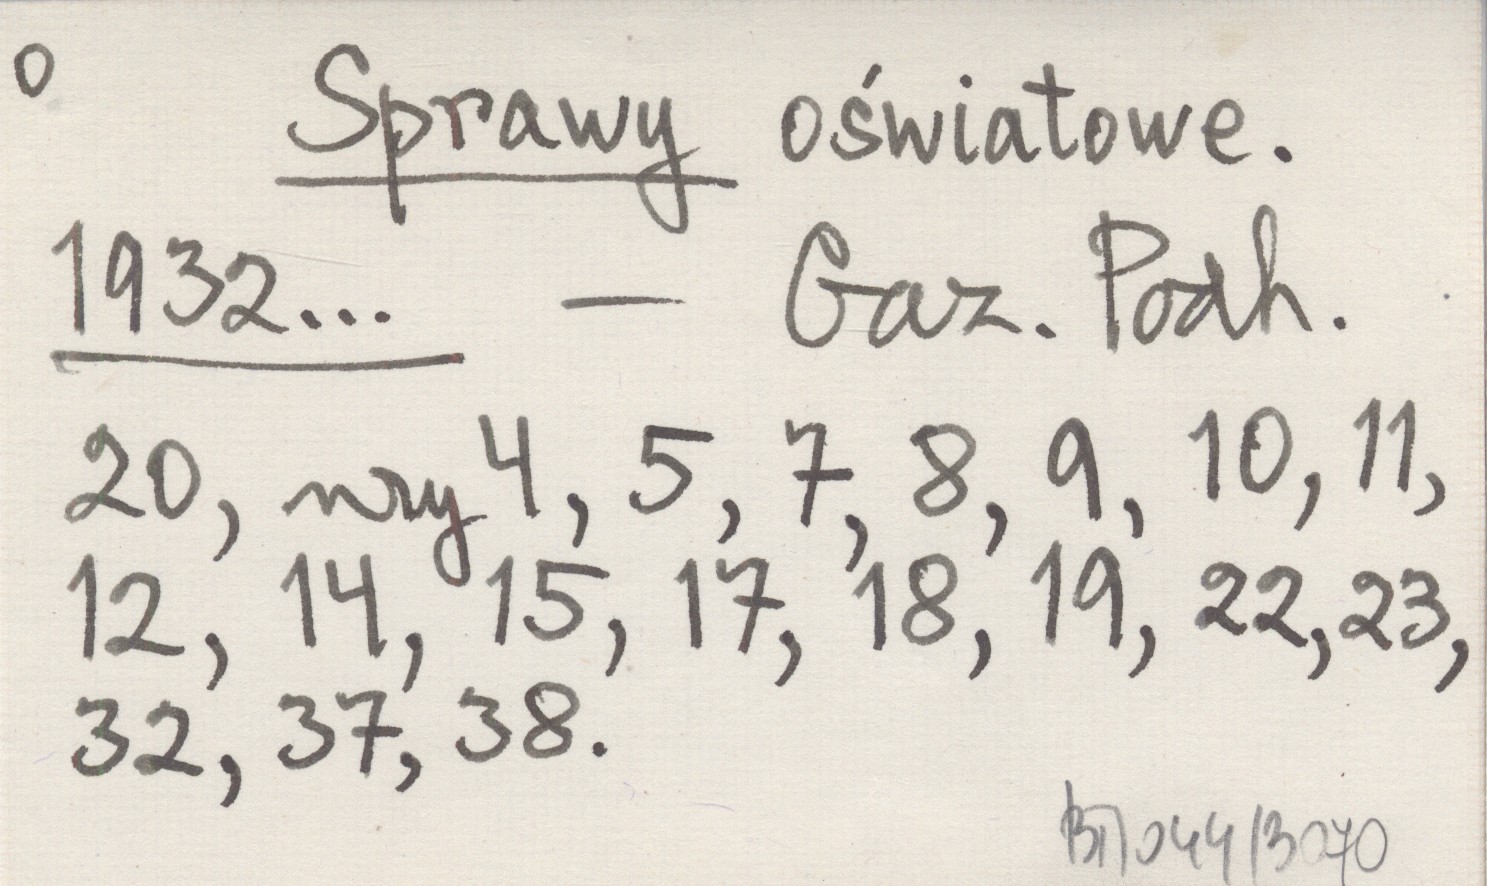 O
Sprawy oświatowe.
1932... — Gaz. Podh.
20, nry 4, 5, 7, 8, 9, 10, 11,
12, 14, 15, 17, 18, 19, 22, 23,
32, 37, 38.
044/3070